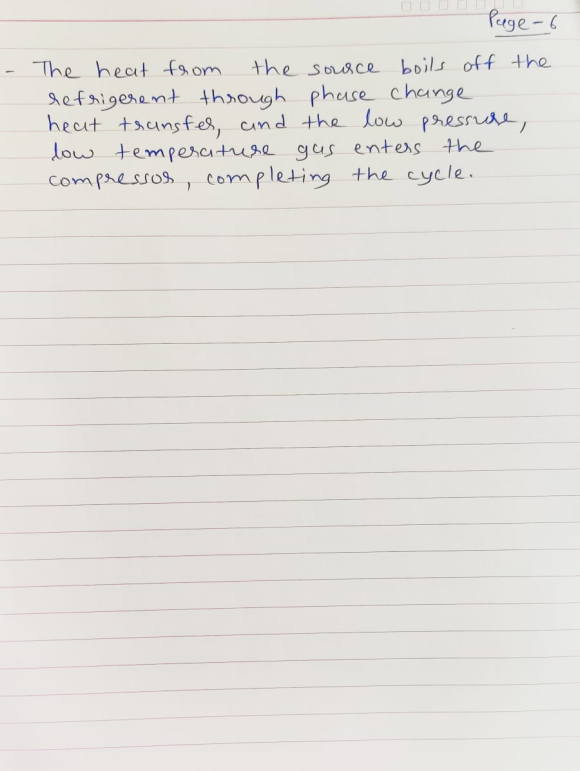 Page - 6
- The heat from the source boils off the
refrigerent through phase change
heat transfer, and the low pressure,
low temperature gas enters the
compressor, completing the cycle.